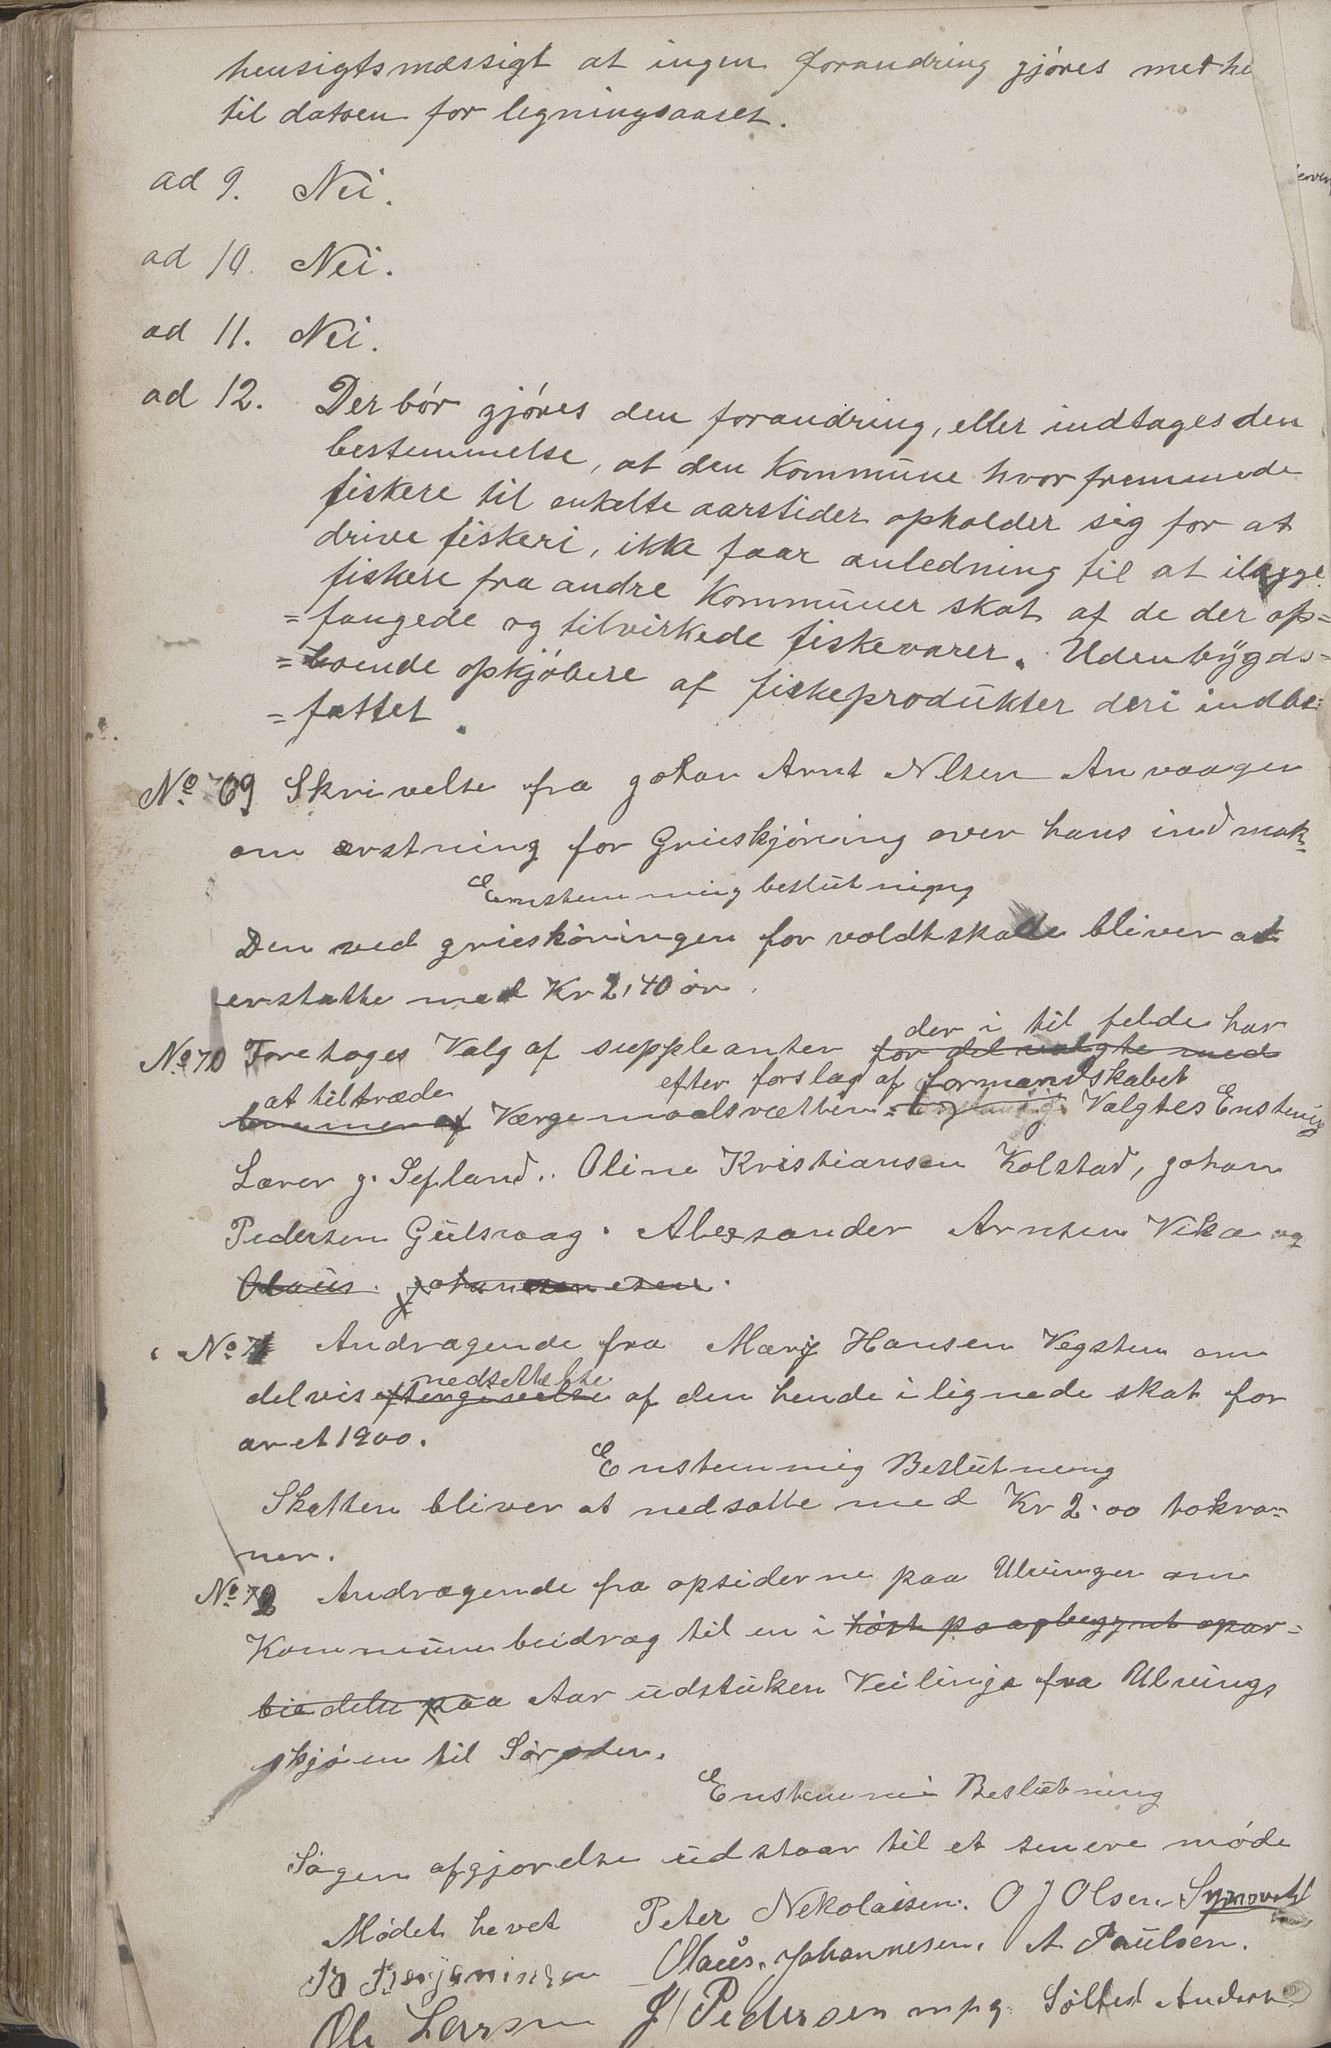 hensigtsmæssigt at ingen forandring gjøres met he
til datoen for ligningsaaset.
ad 9. Nei.
ad 10. Nei.
ad 11. Nei.
ad 12. Der bór gjóres den forandring, eller indtages den
bestemmelse, at den Kommune hvor fremmede
fiskere til enkelte aarstider opholder sig for at
drive fiskeri, ikke faar anledning til at ilægge
fiskere fra andre Kommuner skat af de der op=
=fangede og tilvirkede fiskevarer. Udenbygds=
=boende opkjóbere af fiskeprodukter deri indbe=
=fattet.
No 69 Skrivelse fra Johan Arnt Nilsen Anvaagen
om erstning for Grieskjøreing over hans indmak=
Enstemmig beslutning
Den ved grieskiøringen for voldt skade bliver at
erstatte med Kr 2,40 ør.
der i til felde har
No 70 Foretages Valg af suppleanter for del valgte med
at tiltræde efter forslag af formandskabet
Værgemaalsrætten. Valgtes Enstemig
Lærer J. Sefland. Oline Kristiansen Kolstad, Johan
Pedersen Gulsvaag. Alexsander Arntsen Vika og
Olaus Johannesen.
No 71 Andragende fra Mary Hansen Vegsten om
nedsettelse
delvis eftergivelse af den hende i lignede skat for
aret 1900.
Enstemmig Beslutning
Skatten bliver at nedsatte med Kr 2.00 tokro=
ner.
No 72 Andragende fra opsiderne paa Ulvingen om
Kommunebeidrag til en i høst paabegynt opar=
beidelse paa Aar udstuken Veilinje fra Ulvings
skjøen til Sørøden.
Enstemmi Beslutning
Sagen afgjørelse udstaar til et senere møde
Mødet hevet Peter Nekolaisen. O J Olsen.
B Benjaminsen Olaus. Johannesen. A Paulsen.
Ole Larsen J Pedersen mpg Sølfest Anders